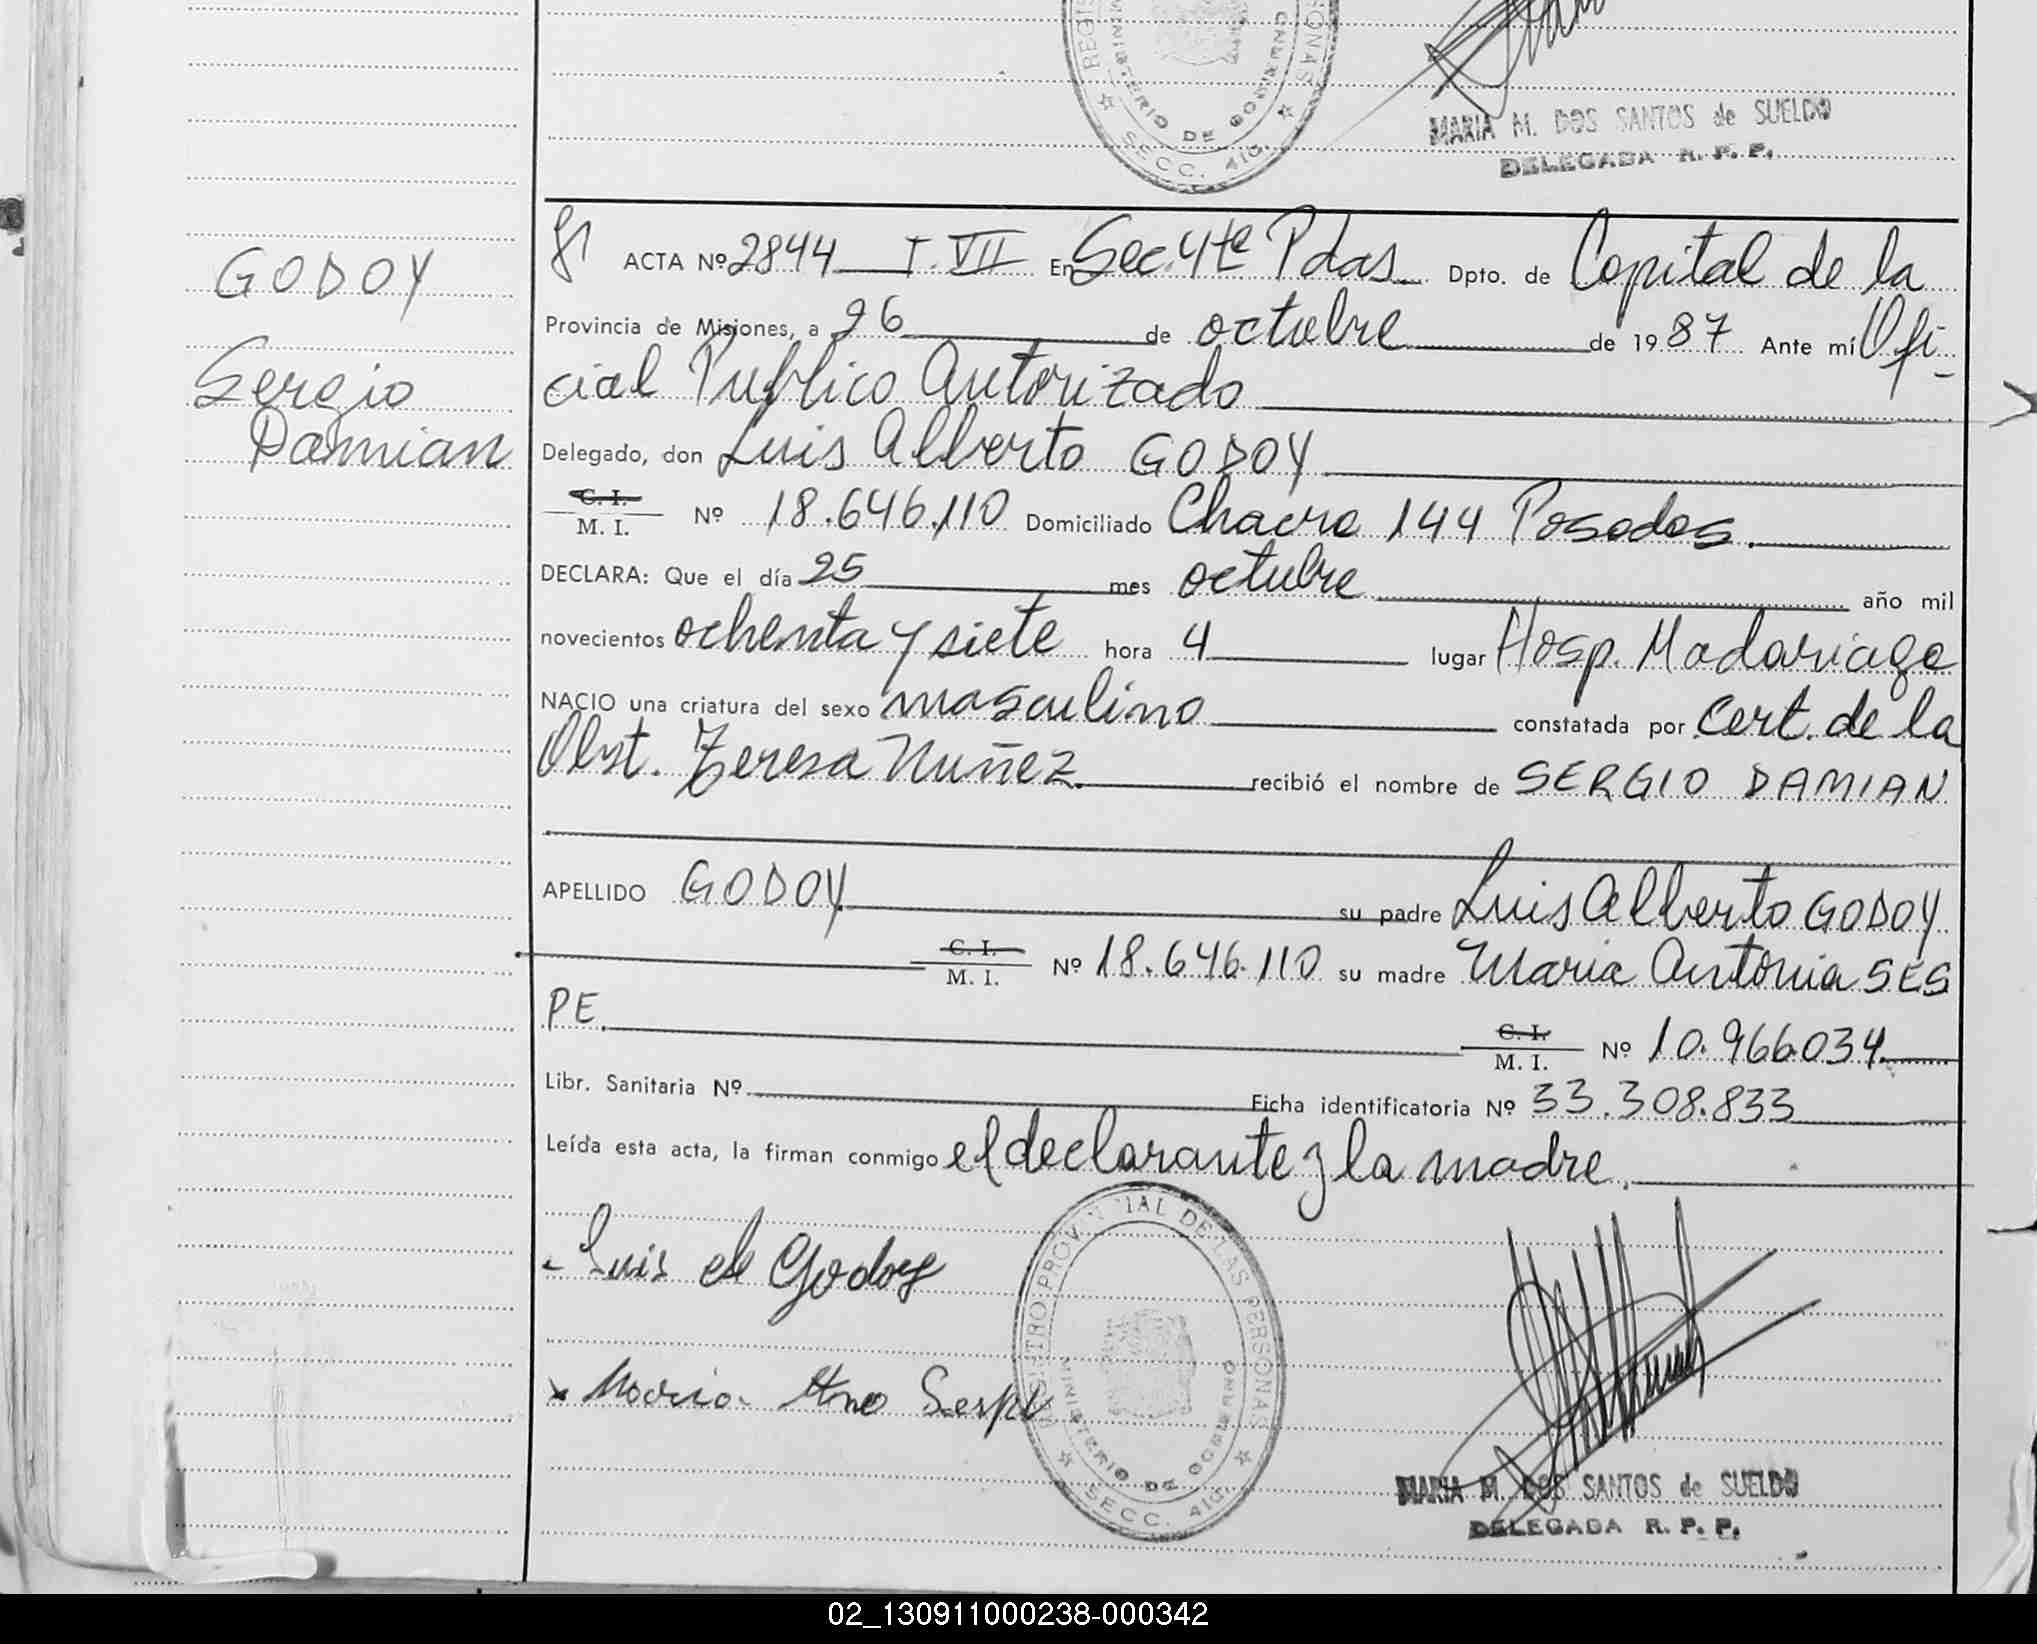 REGIS SONAS
MINISTERIO DE GOBIERNO
SECC. 4ta.
MARIA M. DOS SANTOS de SUELDO
DELEGADA R. P. P.
GODOY
Sergio
Damian
81 ACTA Nº 2844 T. VII En Sec. 4ta Pdas Dpto. de Capital de la
Provincia de Misiones, a 26 de octubre de 1987 Ante mí Ofi-
cial Publico Autorizado
Delegado, don Luis Alberto GODOY
C. I.
M. I. Nº 18.646.110 Domiciliado Chacra 144 Posadas.
DECLARA: Que el día 25 mes octubre año mil
novecientos ochenta y siete hora 4 lugar Hosp. Madariaga
NACIO una criatura del sexo masculino constatada por Cert. de la
Obst. Teresa Nuñez recibió el nombre de SERGIO DAMIAN
APELLIDO GODOY su padre Luis Alberto GODOY
C. I.
M. I. Nº 18.646.110 su madre Maria Antonia SES
PE.
C. I.
M. I. Nº 10.966.034
Libr. Sanitaria Nº Ficha identificatoria Nº 33.308.833
Leída esta acta, la firman conmigo el declarante y la madre.
Luis al Godoy
x Maria Ana Sespe
REGISTRO PROVINCIAL DE LAS PERSONAS
MINISTERIO DE GOBIERNO
SECC. 4ta.
MARIA M. DOS SANTOS de SUELDO
DELEGADA R. P. P.
02_130911000238-000342